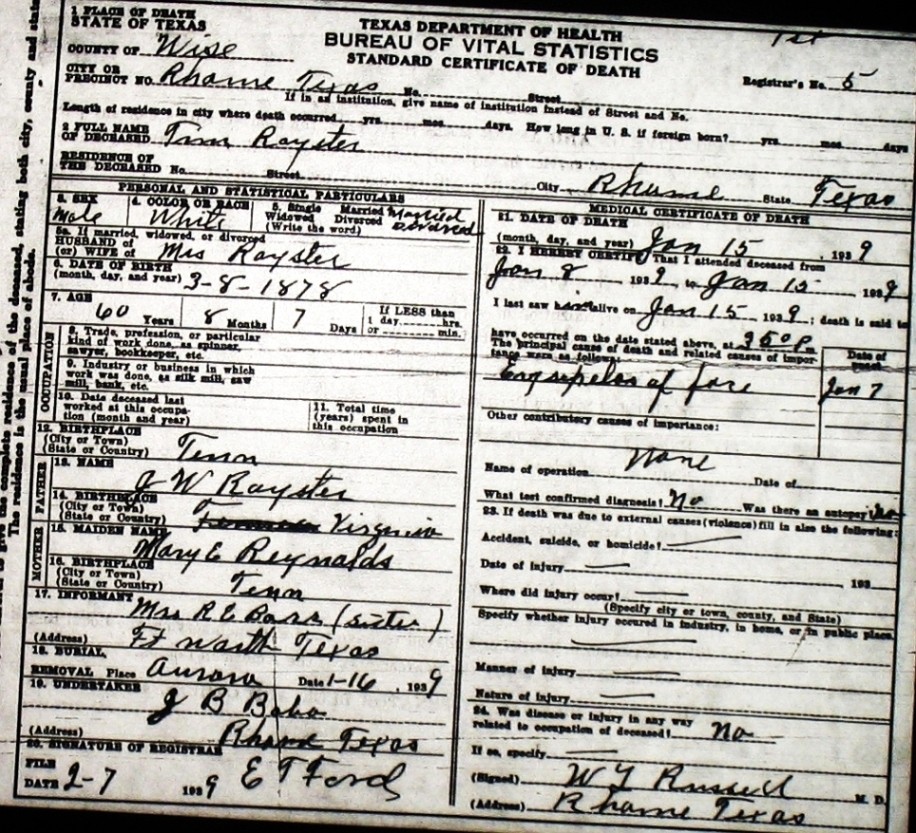 1 PLACE OF DEATH
STATE OF TEXAS
TEXAS DEPARTMENT OF HEALTH
BUREAU OF VITAL STATISTICS
STANDARD CERTIFICATE OF DEATH
1st
COUNTY OF Wise
CITY OR
PRECINCT NO. Rhome Texas No. Street
Registrar's No. 5
If in an institution, give name of institution instead of Street and No.
Length of residence in city where death occurred yrs. mos. days. How long in U. S. if foreign born? yrs. mos. days
2 FULL NAME
OF DECEASED Royster
RESIDENCE OF
THE DECEASED No. Street City Rhome State Texas
PERSONAL AND STATISTICAL PARTICULARS
3. SEX Male
4. COLOR OR RACE White
5. Single Married Widowed Divorced (Write the word) Married Divorced
5a. If married, widowed, or divorced
HUSBAND of
(or) WIFE of Mrs Royster
6. DATE OF BIRTH
(month, day, and year) 3-8-1878
7. AGE 60 Years 8 Months 7 Days If LESS than 1 day hrs. or min.
OCCUPATION
8. Trade, profession, or particular
kind of work done, as spinner,
sawyer, bookkeeper, etc.
9. Industry or business in which
work was done, as silk mill, saw
mill, bank, etc.
10. Date deceased last
worked at this occupa-
tion (month and year)
11. Total time
(years) spent in
this occupation
12. BIRTHPLACE
(City or Town)
(State or Country) Tenn
FATHER
13. NAME J W Royster
14. BIRTHPLACE
(City or Town)
(State or Country) Virginia
MOTHER
15. MAIDEN NAME Mary E Reynolds
16. BIRTHPLACE
(City or Town)
(State or Country) Tenn
17. INFORMANT Mrs R E (sister)
(Address) Ft Worth Texas
18. BURIAL,
REMOVAL Place Aurora Date 1-16, 1939
19. UNDERTAKER
J B
(Address) Rhome Texas
20. SIGNATURE OF REGISTRAR
FILE
DATE 2-7 1939 E T Ford
MEDICAL CERTIFICATE OF DEATH
21. DATE OF DEATH
(month, day, and year) Jan 15, 1939
22. I HEREBY CERTIFY That I attended deceased from
Jan 8 1939, to Jan 15 1939
I last saw him alive on Jan 15 1939; death is said to
have occurred on the date stated above, at 350 P.
The principal cause of death and related causes of impor-
tance were as follows:
Date of
onset
Erysipelas of face Jan 7
Other contributory causes of importance:
Name of operation None Date of
What test confirmed diagnosis? No Was there an autopsy? No
23. If death was due to external causes (violence) fill in also the following:
Accident, suicide, or homicide?
Date of injury 193
Where did injury occur?
(Specify city or town, county, and State)
Specify whether injury occured in industry, in home, or in public place.
Manner of injury
Nature of injury
24. Was disease or injury in any way
related to occupation of deceased? No
If so, specify
(Signed) Russell M. D.
(Address) Rhome Texas